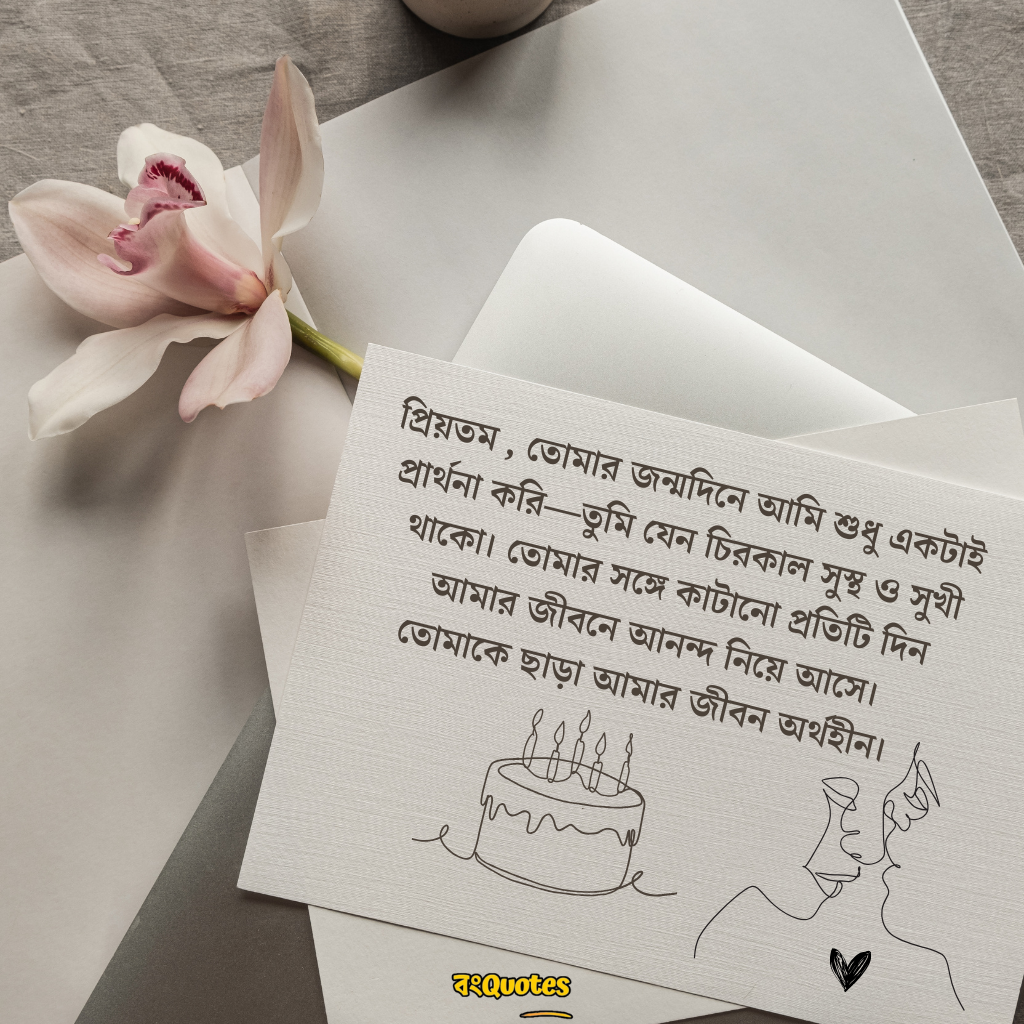 প্রিয়তম , তোমার জন্মদিনে আমি শুধু একটাই
প্রার্থনা করি—তুমি যেন চিরকাল সুস্থ ও সুখী
থাকো। তোমার সঙ্গে কাটানো প্রতিটি দিন
আমার জীবনে আনন্দ নিয়ে আসে।
তোমাকে ছাড়া আমার জীবন অর্থহীন।
বংQuotes